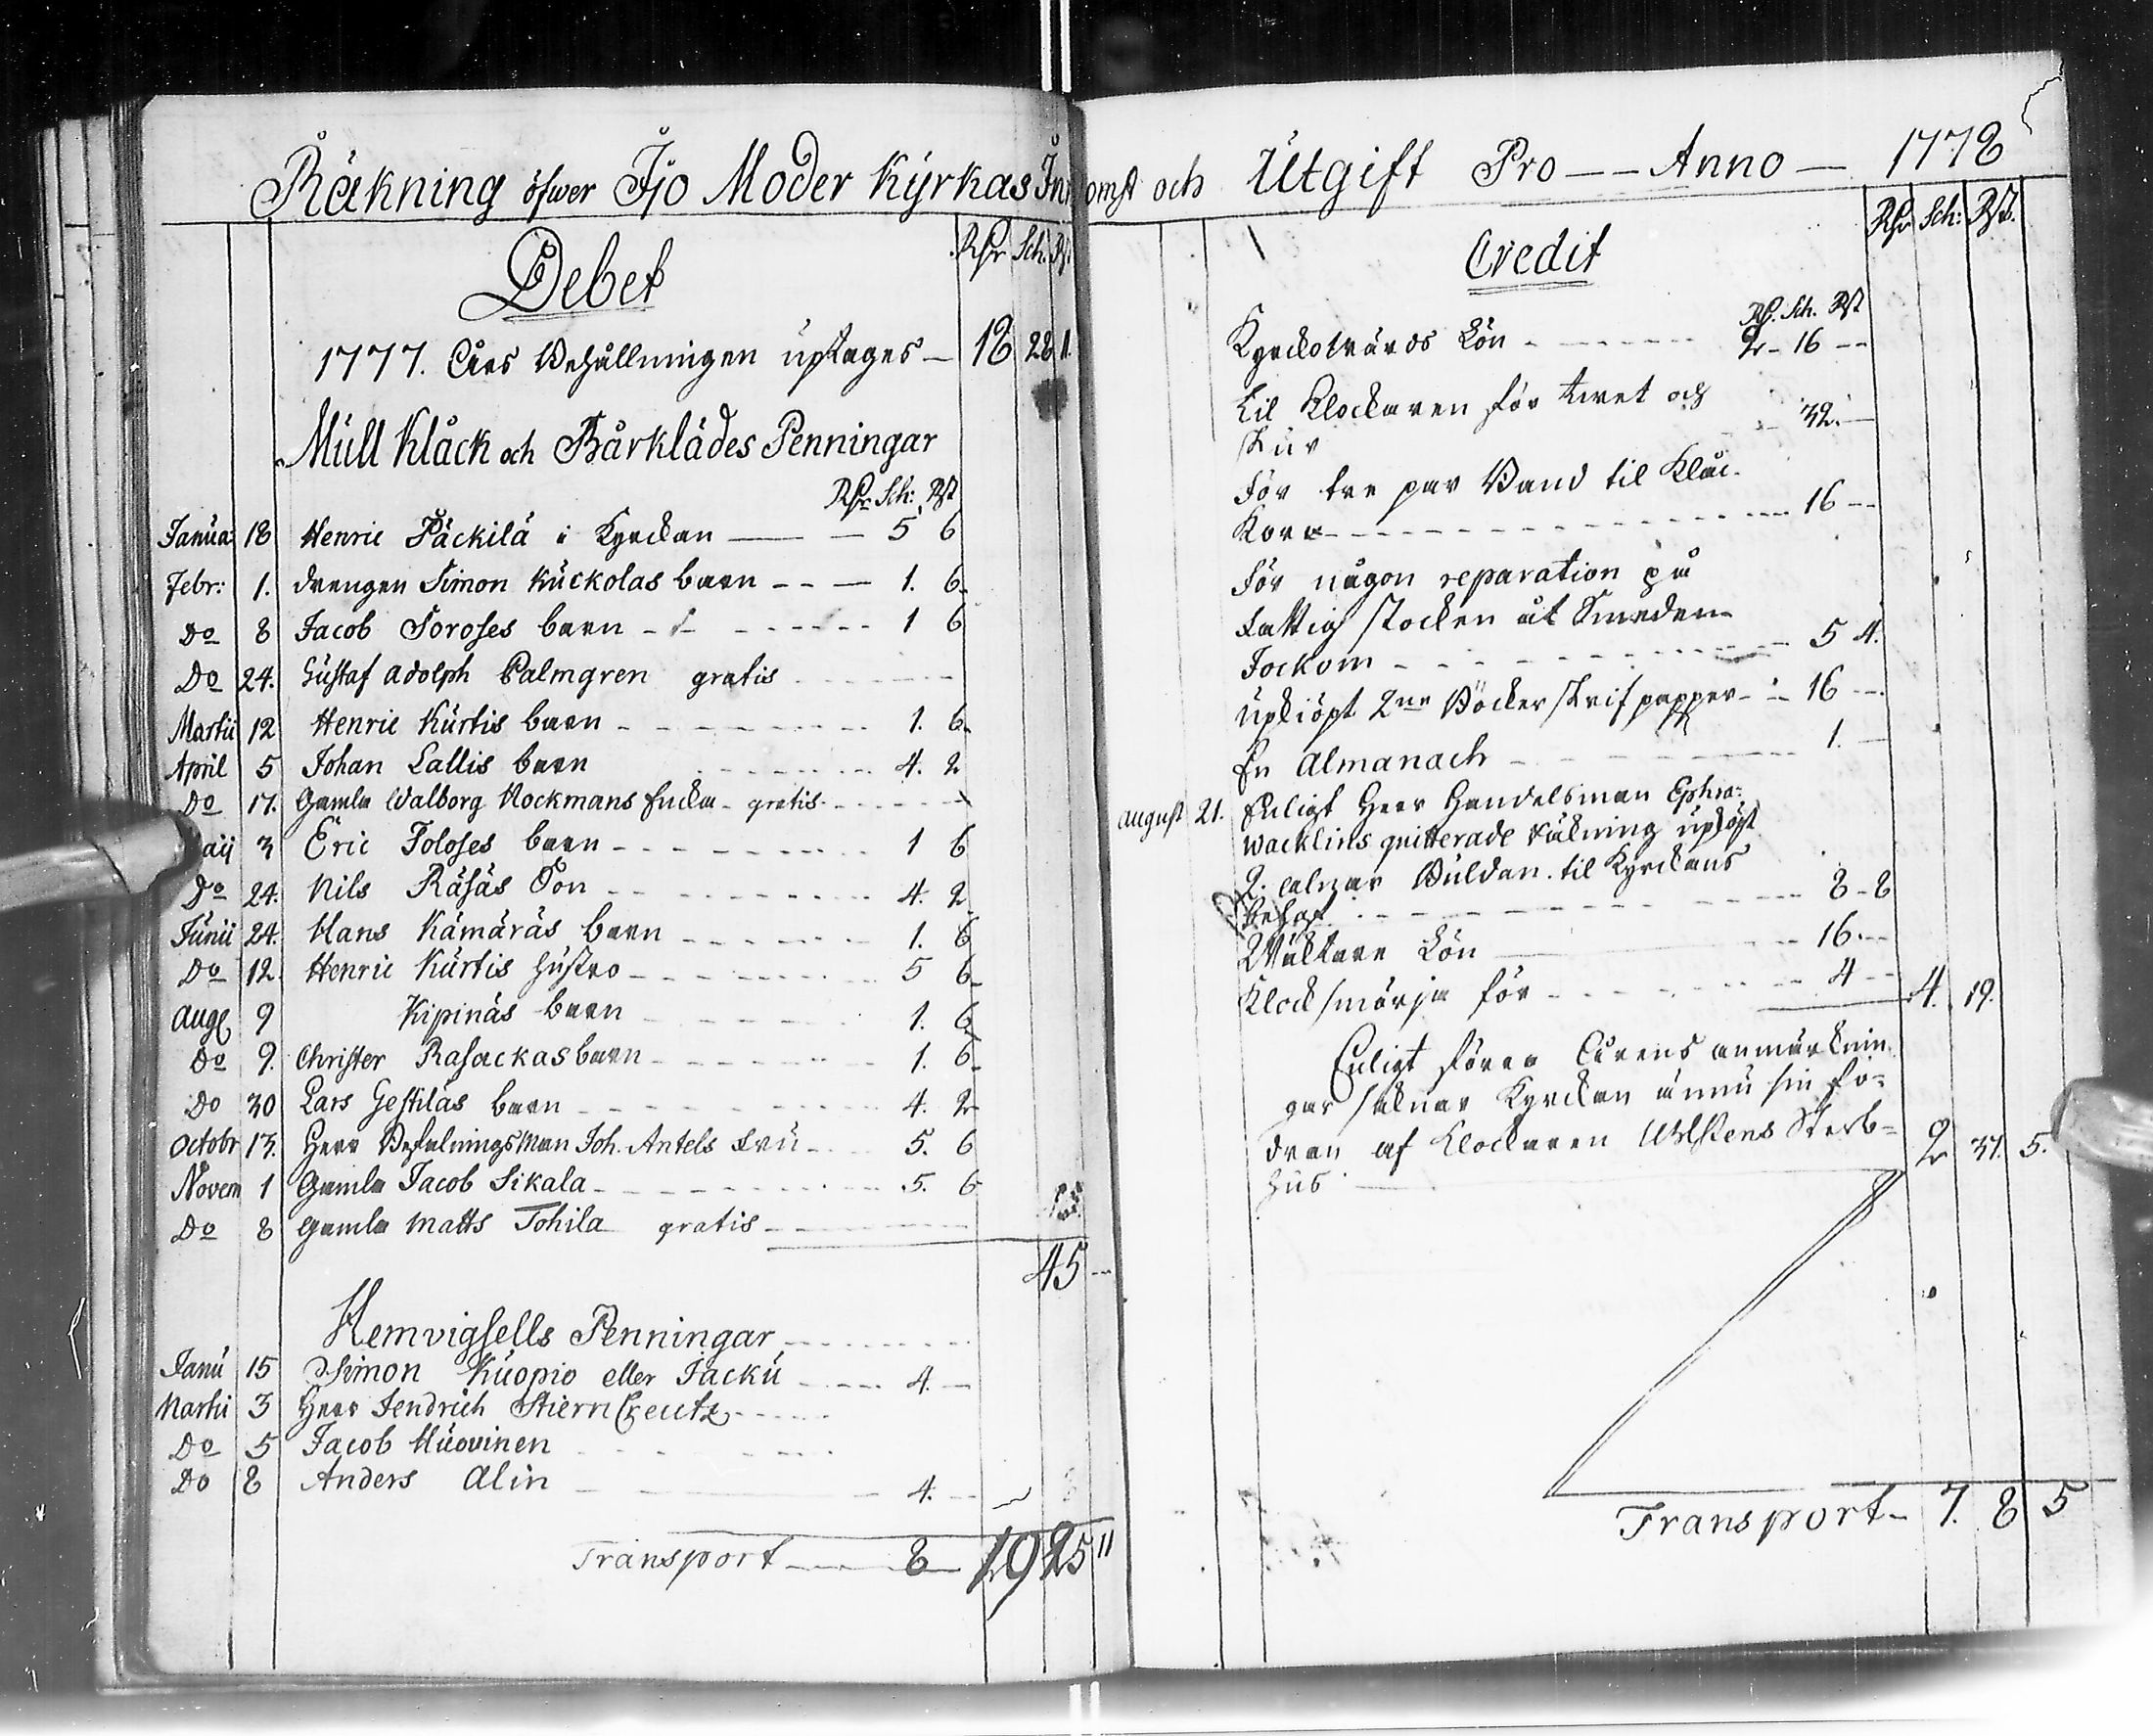 Räkning öfwer Ijo Moder Kyrkas Inkomst och Utgift Pro — — Anno — 1778
Debet
Rdr Sch. Rst
1777. Års Behållningen uptages — 18 28 11.
Mull Klåck och Bårklädes Penningar
Rdr Sch: Rst
Janua: 18 Henric Päckilä i Kyrckan — — 5 6
Febr: 1. drengen Simon Kuckolas barn - - — 1. 6.
Do 8 Jacob Soroses barn - - - - 1 6
Do 24. Gustaf Adolph Palmgren gratis
Martii 12 Henric Kurtis barn - - - 1. 6.
April 5 Johan Lallis barn - - - 4. 2
Do 17. Gamla Walborg Nockmans Encka - gratis - - -
Maij 3 Eric Toloses barn - - - 1 6
Do 24. Nils Räsäs Son - - - 4. 2
Junii 24. Hans Kämäräs barn - - - 1. 6
Do 12. Henric Kurtis hustro - - - 5 6
Aug 9 Kipinäs barn - - - 1. 6
Do 9. Christer Rasackas barn - - - 1. 6
Do 30 Lars Gestiläs barn - - - 4. 2
Octobr 13. Herr Befalnings Man Joh. Antels Fru - - - 5. 6
Novem 1 Gamla Jacob Sikala - - - 5. 6
Do 8 Gamla Matts Tohila gratis - - -
45 —
Hemvigsells Penningar
Janu 15 Simon Kuopio eller Jacku - - - 4. —
Martii 3 Herr Jendrich StiernCreutz - - -
Do 5 Jacob Huovinen
Do 8 Anders Alin — 4. —
Transport — 8 — 19 25 11
Credit
Rdr Sch: Rst.
Rd. Sch. Rst
Kyrckowärds Lön - - - 2 - 16 - -
til Klockaren för twet och
skur - 32. —
För tre par Band til Klåc-
Kora - - - 16 - -
För någon reparation på
Fattig stocken åt Smeden
Jockom - - - 5 4.
Upkiöpt 2ne Böcker skrif papper - - 16 - -
En Almanach - - - 1. —
August 21. Enligt Herr Handelsman Ephra:
Wacklins quitterade räkning upköpt
2. alnar Buldan til Kyrckans
behof - - - 8 - 8
Wäktare Lön - - 16. - -
Klocksmörja för - - - 4 - - 4. 19.
Enligt förra Årens anmärknin-
gar saknar Kyrckan ännu sin for-
dran af Klockaren Uhlstens Sterb-
hus — 2 37. 5.
Transport - 7. 8 5